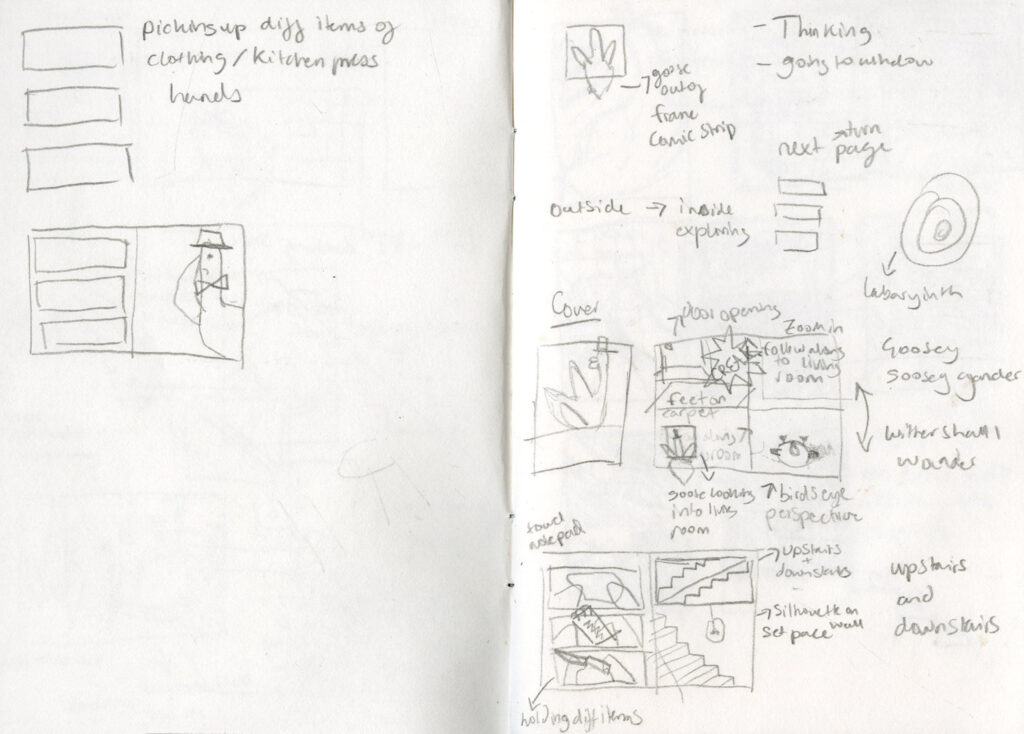 pickingup diff items of
clothing / kitchen press
hands
- Thinking
- going to window
goose
out of
frame
comic strip
turn
next page
outside → inside
exploring
labaryinth
Cover
door opening
Zoom in
follow along
to living
room
feet on
carpet
goose looking
into living
room
birdseye
perspective
Goosey
Goosey gander
wither shall I
wander
towel
notepad
upstairs
+
downstairs
silhouette on
wall
set pace
upstairs
and
downstairs
holding diff items